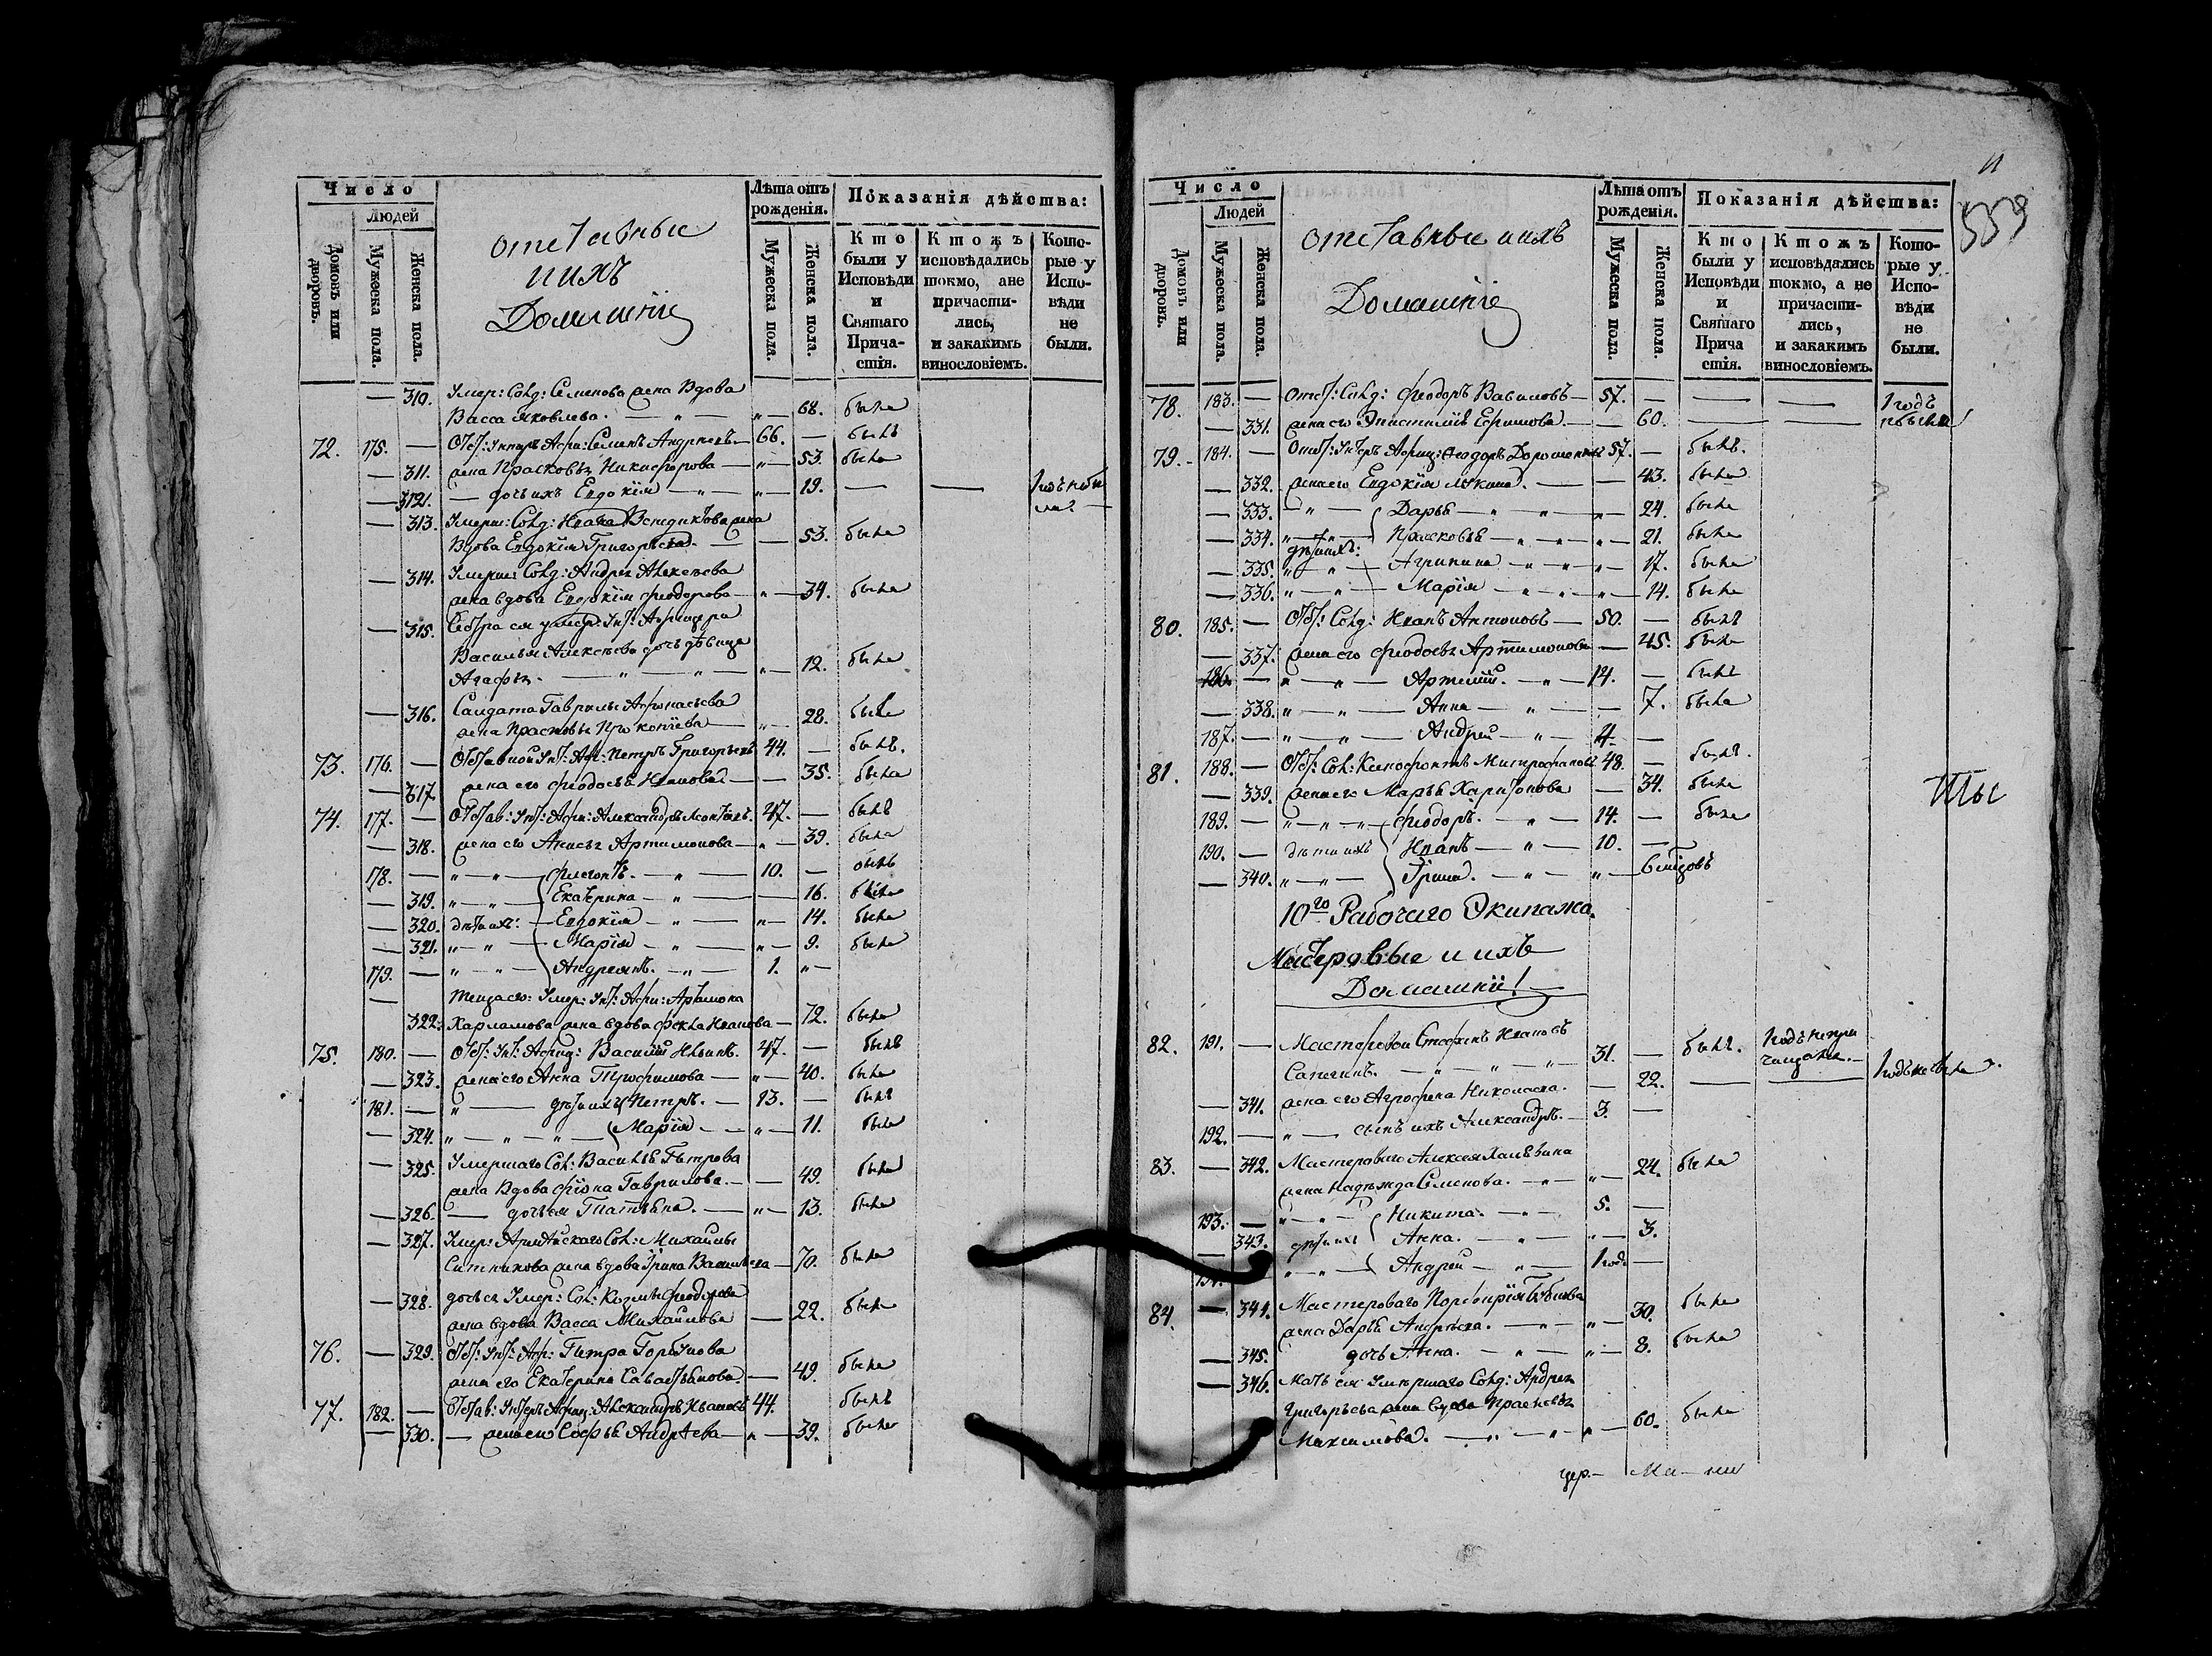 Число
Людей
Домовъ или дворовъ.
Мужеска пола.
Женска пола.
отставные
и ихъ
Домашніе
Лѣта отъ рожденія.
Мужеска пола.
Женска пола.
Показанія дѣйства:
Кто были у Исповѣди и Святаго Причастія.
Ктожъ исповѣдались токмо, а не причастились, и за какимъ винословіемъ.
Которые у Исповѣди не были.
— 310. Умер: Солд: Семенова жена Вдова
Васса Яковлева. — 68. была
72. 175. — Отст: Унтеръ Афи: Семенъ Андреевъ — 66. — былъ
— 311. жена Прасковья Никифорова — 53. была
— 312. — дочь ихъ Евдокія — 19. — —
— 313. Умерш: Солд: Ивана Венедиктова жена
Вдова Евдокія Григорьева. — 53. была
— 314. Умерш: Солд: Андрея Алексѣева
жена вдова Евдокія Феодорова — 34. была
— 315. Сестра ея умер: Унт: Афицера
Василья Алексѣева дочь дѣвица
Агафья. — 12. была
— 316. Салдата Гаврилы Афонасьева
жена Прасковья Прокопіева — 28. была
73. 176. — Отставной Унт: Аф: Петръ Григорьевъ 44. — былъ.
— 317. жена его Феодосья Иванова — 35. была
74. 177. — Отстав: Унт: Афи: Александръ Леонтьевъ. 47. — былъ
— 318. жена его Анисья Артамонова — 39. была
178. — " " — Флегонтъ. — 10. — былъ
— 319. " " — Екатерина — 16. была
— 320. дѣти ихъ: — Евдокія — 14. была
— 321. " " — Марія — 9. была
179. — " " — Андреянъ. — 1. " —
— Теща его: Умер: Унт: Афи: Артамона
322. Харламова жена вдова Фекла Иванова — 72. была
75. 180. — Отст: Унт: Афиц: Василій Ильинъ. 47. — былъ
— 323. жена его Анна Трофимова — 40. была
181. — " — дѣти ихъ Петръ. — 13. — былъ
— 324. " — " — " — Марія — 11. была
— 325. Умершаго Сол: Василья Петрова
жена Вдова Фіона Гаврилова. — 49. была
— 326. — дочь ея Татьяна. — 13. была
— 327. Умер: Армейскаго Сол: Михайлы
Ситникова жена вдова Ирина Васильева — 70. была
— 328. дочь ея Умер: Сол: Козмы Феодорова
жена вдова Васса Михайлова — 22. была
76. — 329. Отст: Унт: Аф: Петра Горбунова
жена его Екатерина Савастьянова. — 49. была
77. 182. — Отстав: Унтеръ Афиц: Александръ Ивановъ 44. былъ
— 330. — жена его Софья Андрѣева — 39. была
559
Число
Людей
Домовъ или дворовъ.
Мужеска пола.
Женска пола.
отставные и ихъ
Домашніе
Лѣта отъ рожденія.
Мужеска пола.
Женска пола.
Показанія дѣйства:
Кто были у Исповѣди и Святаго Причастія.
Ктожъ исповѣдались токмо, а не причастились, и за какимъ винословіемъ.
Которые у Исповѣди не были.
78. 183. — Отст: Солд: Феодоръ Василовъ — 57. — — — 1 годъ
— 331. жена его Епистимія Ефимова. — 60. — —
79. 184. — Отст: Унтеръ Афиц: Феодоръ 57. — былъ.
— 332. жена его Евдокія Лукина. — 43. была
— 333. " — Дарья — 24. была
— 334. " — Прасковья — 21. была
дѣти ихъ:
— 335. " — Агрипина — 17. была
— 336. " — Марія — 14. была
80. 185. — Отст: Солд: Иванъ Антоновъ — 50. — былъ
— 337. жена его Феодосья Артамонова — 45. была
186. — " — Артемій. — 14. — былъ
— 338. " — Анна — 7. была
187. — " — Андрей — 4. —
81. 188. — Отст: Сол: Ксенофонтъ Митрофановъ 48. — былъ
— 339. жена его Марья Харитонова — 34. была
189. — " " " Феодоръ. — 14. — была
190. — дѣти ихъ Иванъ — 10. —
— 340. " " Ирина. — "
10го Рабочаго Экипажа
Мастеровые и ихъ
Домашніи
82. 191. — Мастеровой Стефанъ Ивановъ
31. — былъ.
341. жена его Агрофена Николаева. — 22. — —
192. — " — сынъ ихъ Александръ. — 3. —
83. — 342. Мастероваго Алексея
жена Надѣжда Семенова. — 24. была
193. — " — Никита. — 5. —
343. дѣти ихъ Анна. — 3.
" — Андрей — 1 годъ —
84. — 344. Мастероваго Порфирія
жена Дарья Андрѣева. — 30. была
— 345. дочь Анна. — 8. была
— 346. Мать ея Умершаго Солд: Андрея
Григорьева жена вдова Прасковья
Максимова. — 60. была